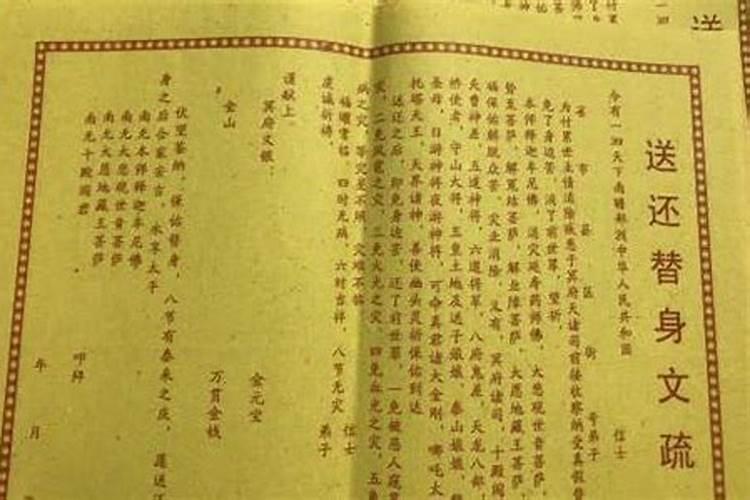 送还替身文疏
今有一泗天下南赡部洲中华人民共和国 信士
省 市 县 区 街 号弟子
为付累世主债消除疾患于冥府天诸司前接收察纳受真假替
免了身边苦，消了前世罪，望祈
本师释迦牟尼佛，消灾延寿药师佛，大慈观世音菩萨
势至菩萨，解冤结菩萨，解业障菩萨，大愿地藏王菩萨，
福保佑解脱众苦，灾业消除，又有，冥府诸司，十殿阎
天曹神差，五道神将，六道将军，八府鬼差，天龙八部，
桥使者，守山大将，五皇土地及送子娘娘，泰山娘娘，
圣母，日游神将夜游神将，可命真君诸大金刚，哪吒太
托塔天王，天界诸神，善使幽头灵祈保佑到达
送还之后，即免身边苦，还了前世罪，一免被恶人
灾，二免风雹之灾，三免火光之灾，四免血光之灾，五
病之灾，等灾是不照，灾难不临
福曜常临，四时无病，六时吉祥，八节无灾 信士
虔诚祈祷， 弟子
谨献上
冥府文银： 金元宝
金山 万贯金钱
伏望鉴纳，保佑替身，八节有泰来之庆，愿送还
身之后合家安吉，永享太平
南无本师释迦牟尼佛
南无大慈观世音菩萨
南无大愿地藏王菩萨
南无十殿阎君
叩拜
年 月